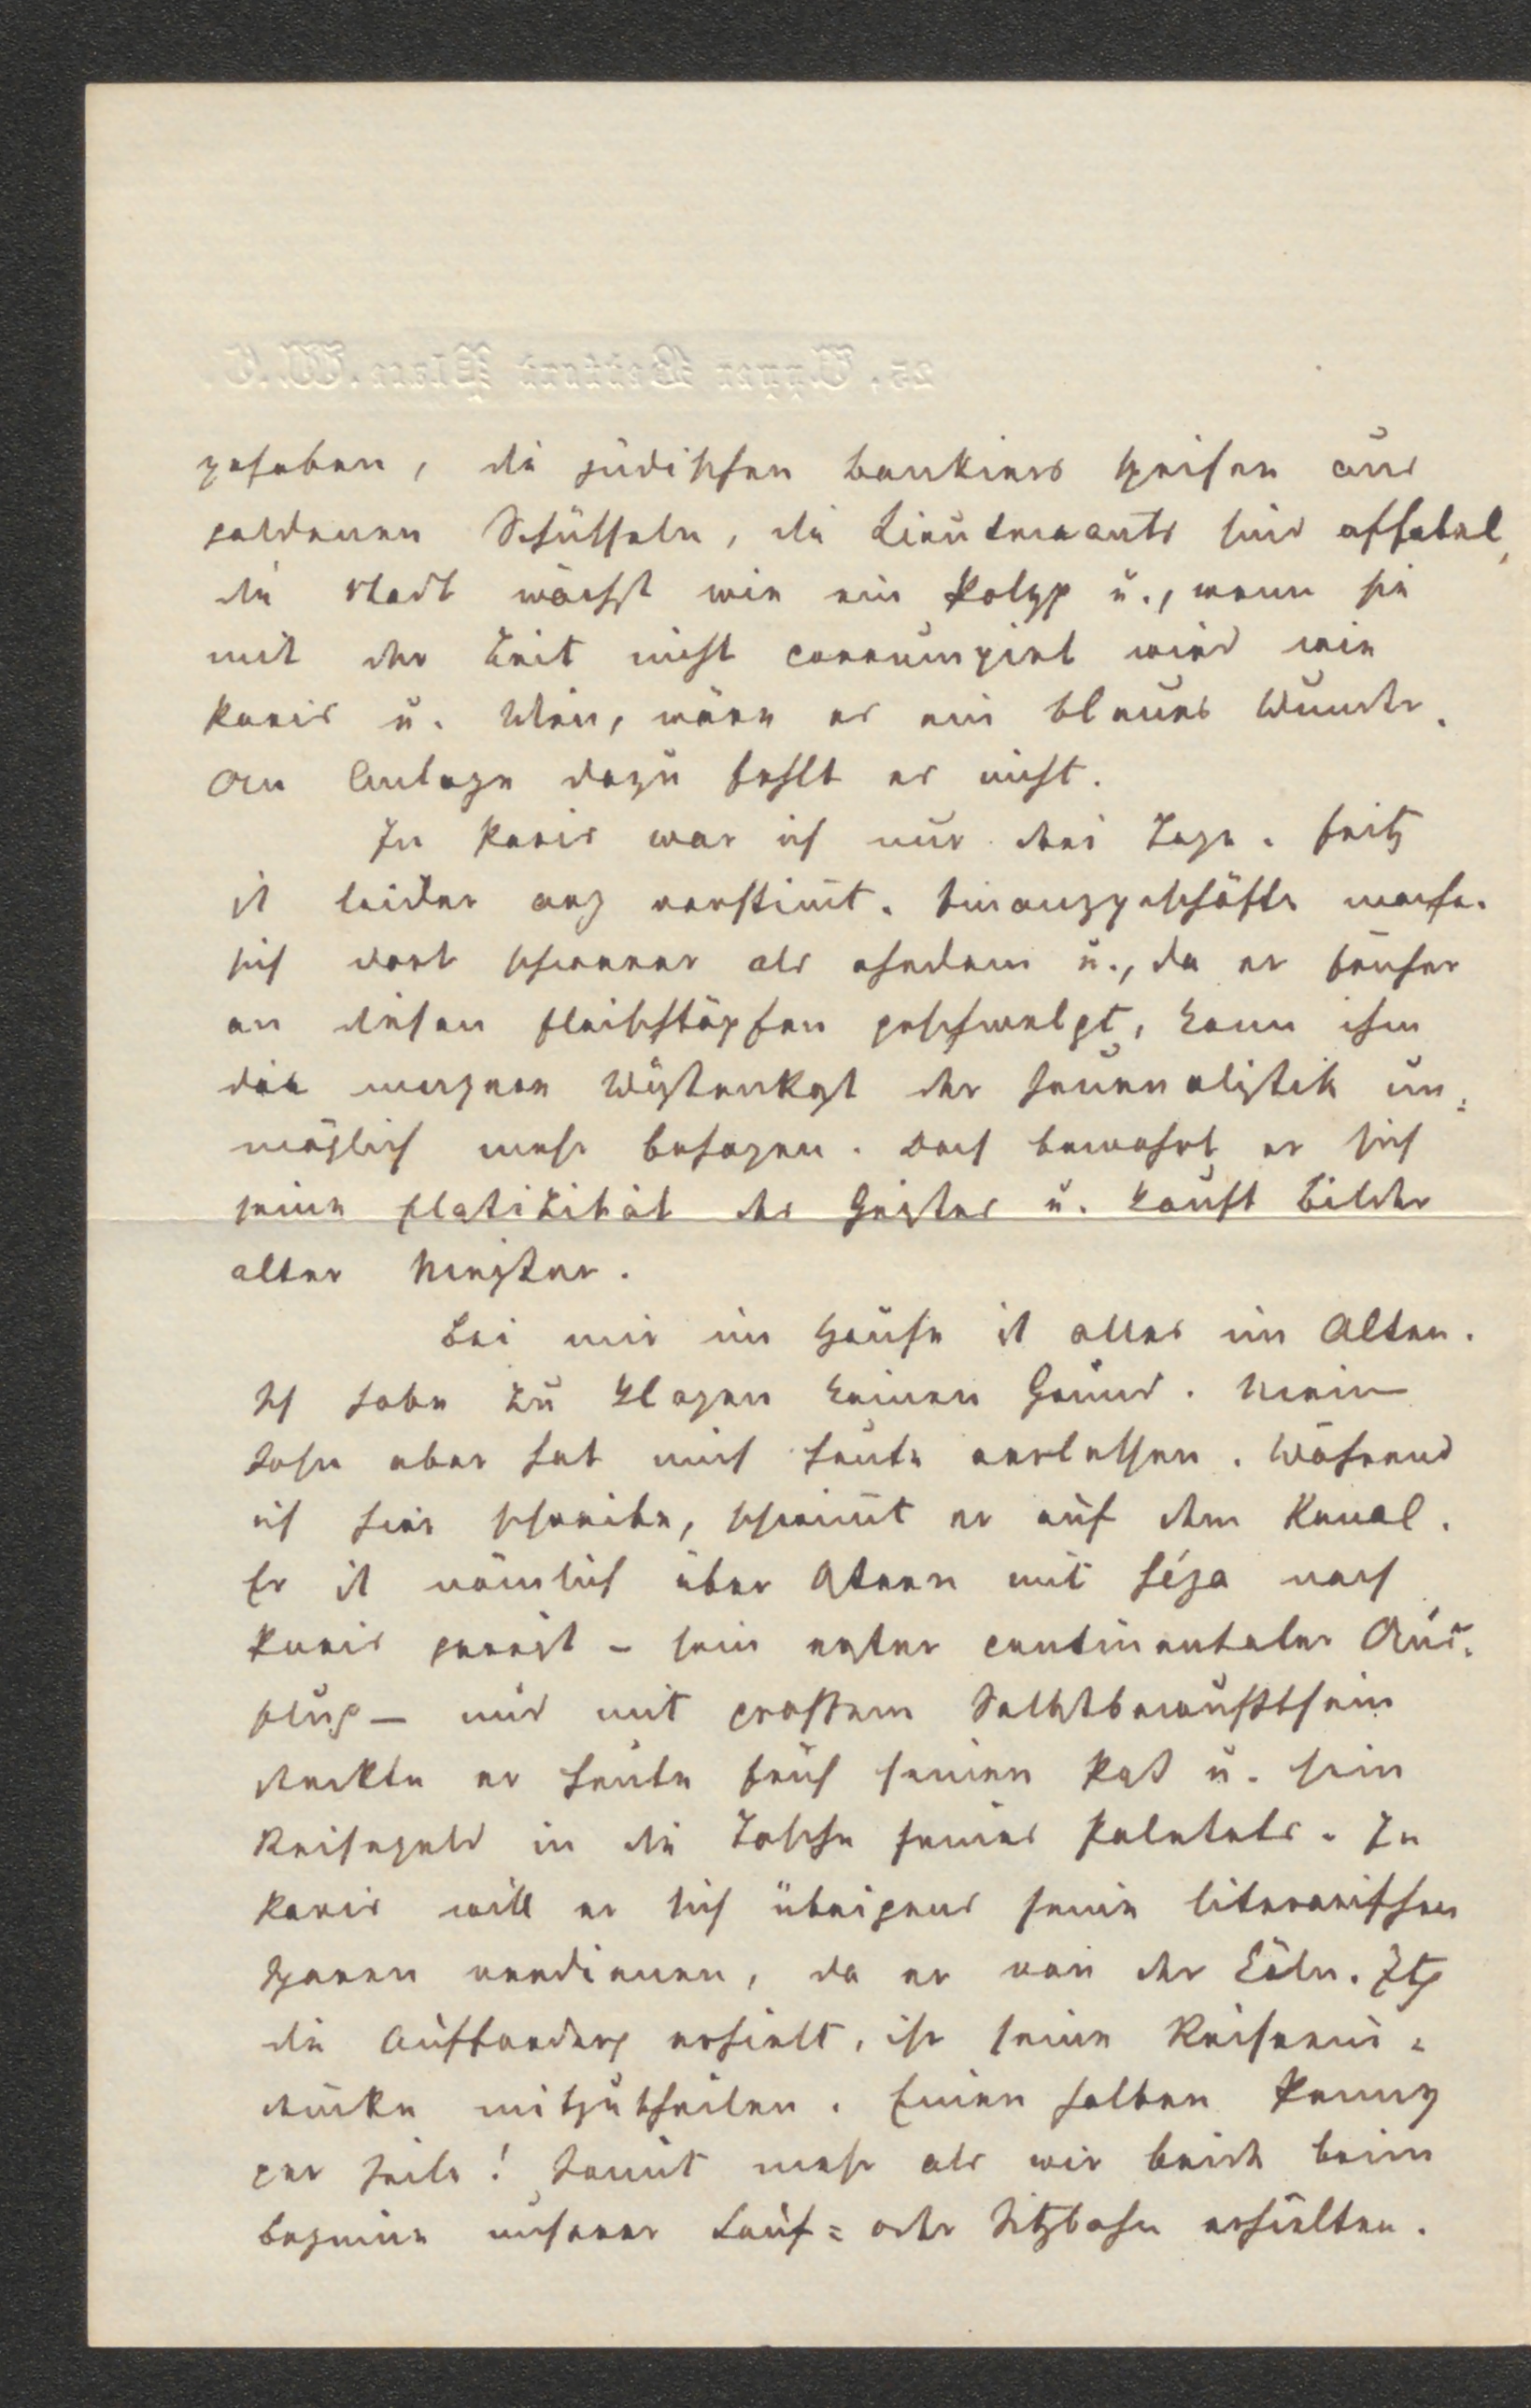 25, Upper Bedford Place. W.C.
gehoben, die jüdischen Bankiers speisen aus
goldenen Schüsseln, die Lieutenants sind affabel,
die Stadt wächst wie ein Polyp u., wenn sie
mit der Zeit nicht corrumpirt wird wie
Paris u. Wien, wäre es ein blaues Wunder.
An Anlage dazu fehlt es nicht.
In Paris war ich nur drei Tage. Fritz
ist leider arg verstim̄t. Finanzgeschäfte mache.
sich dort schwerer als ehedem u., da er früher
an diesen Fleischtöpfen geschwelgt, kann ihm
die magere Wüstenkost der Journalistik un=
möglich mehr behagen. Doch bewahrt er sich
seine Elasticität des Geistes u. kauft Bilder
alter Meister.
Bei mir im Hause ist alles im Alten.
Ich habe zu klagen keinen Grund. Mein
Sohn aber hat mich heute verlassen. Während
ich hier schreibe, schwim̄t er auf dem Kanal.
Er ist nämlich über Ostern mit Géza nach
Paris gereist – sein erster continentaler Aus=
flug – und mit großem Selbstbewußtsein
steckte er heute früh seinen Paß u. sein
Reisegeld in die Tasche seines Paletots. In
Paris will er sich übrigens seine literarischen
Sporen verdienen, da er von der Köln. Ztg
die Aufforderg erhielt, ihr seine Reiseein=
drücke mitzutheilen. Einen halben Penny
per Zeile! Somit mehr als wir beide beim
Beginne unserer Lauf= oder Sitzbahn erhielten.